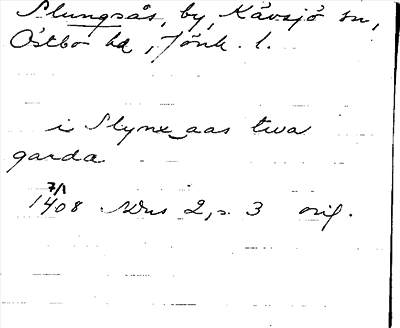 Slungsås, by, Kävsjö sn,
Östbo hd, Jönk. l.
i Slynx aas twa
garda
7/1
1408 SDns 2, s. 3 orig.